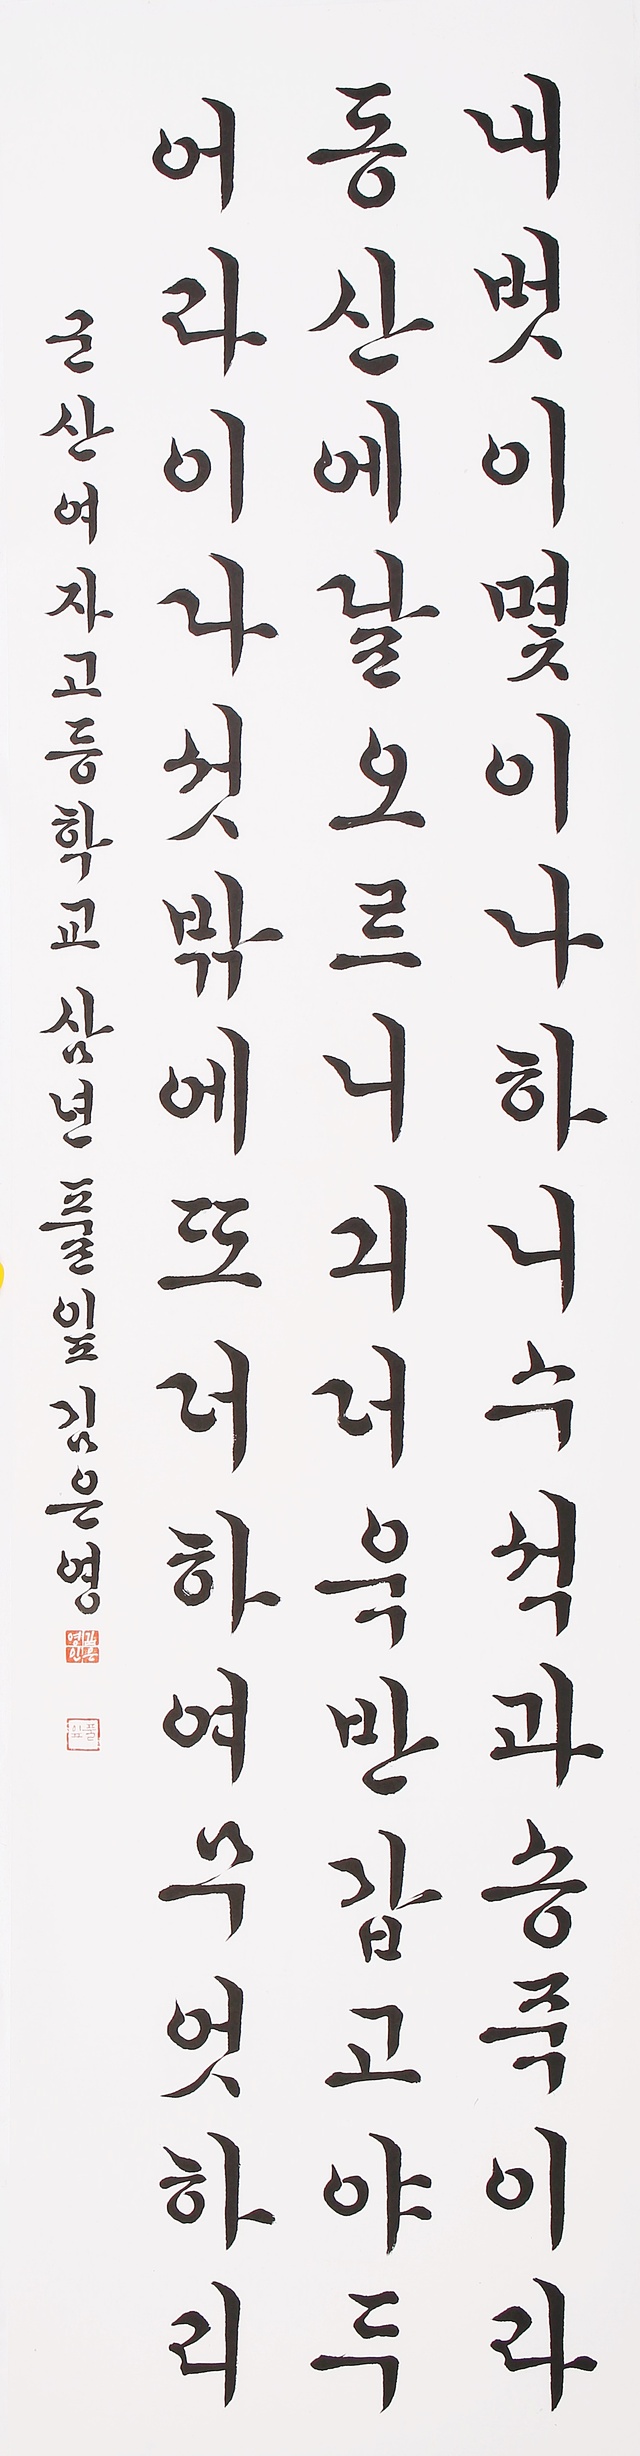 내벗이몇이나하니수석과송죽이라
동산에달오르니긔더욱반갑고야두
어라이다섯밖에또더하여무엇하리
군산여자고등학교 삼년 풀잎 김은영
김은영인
풀잎